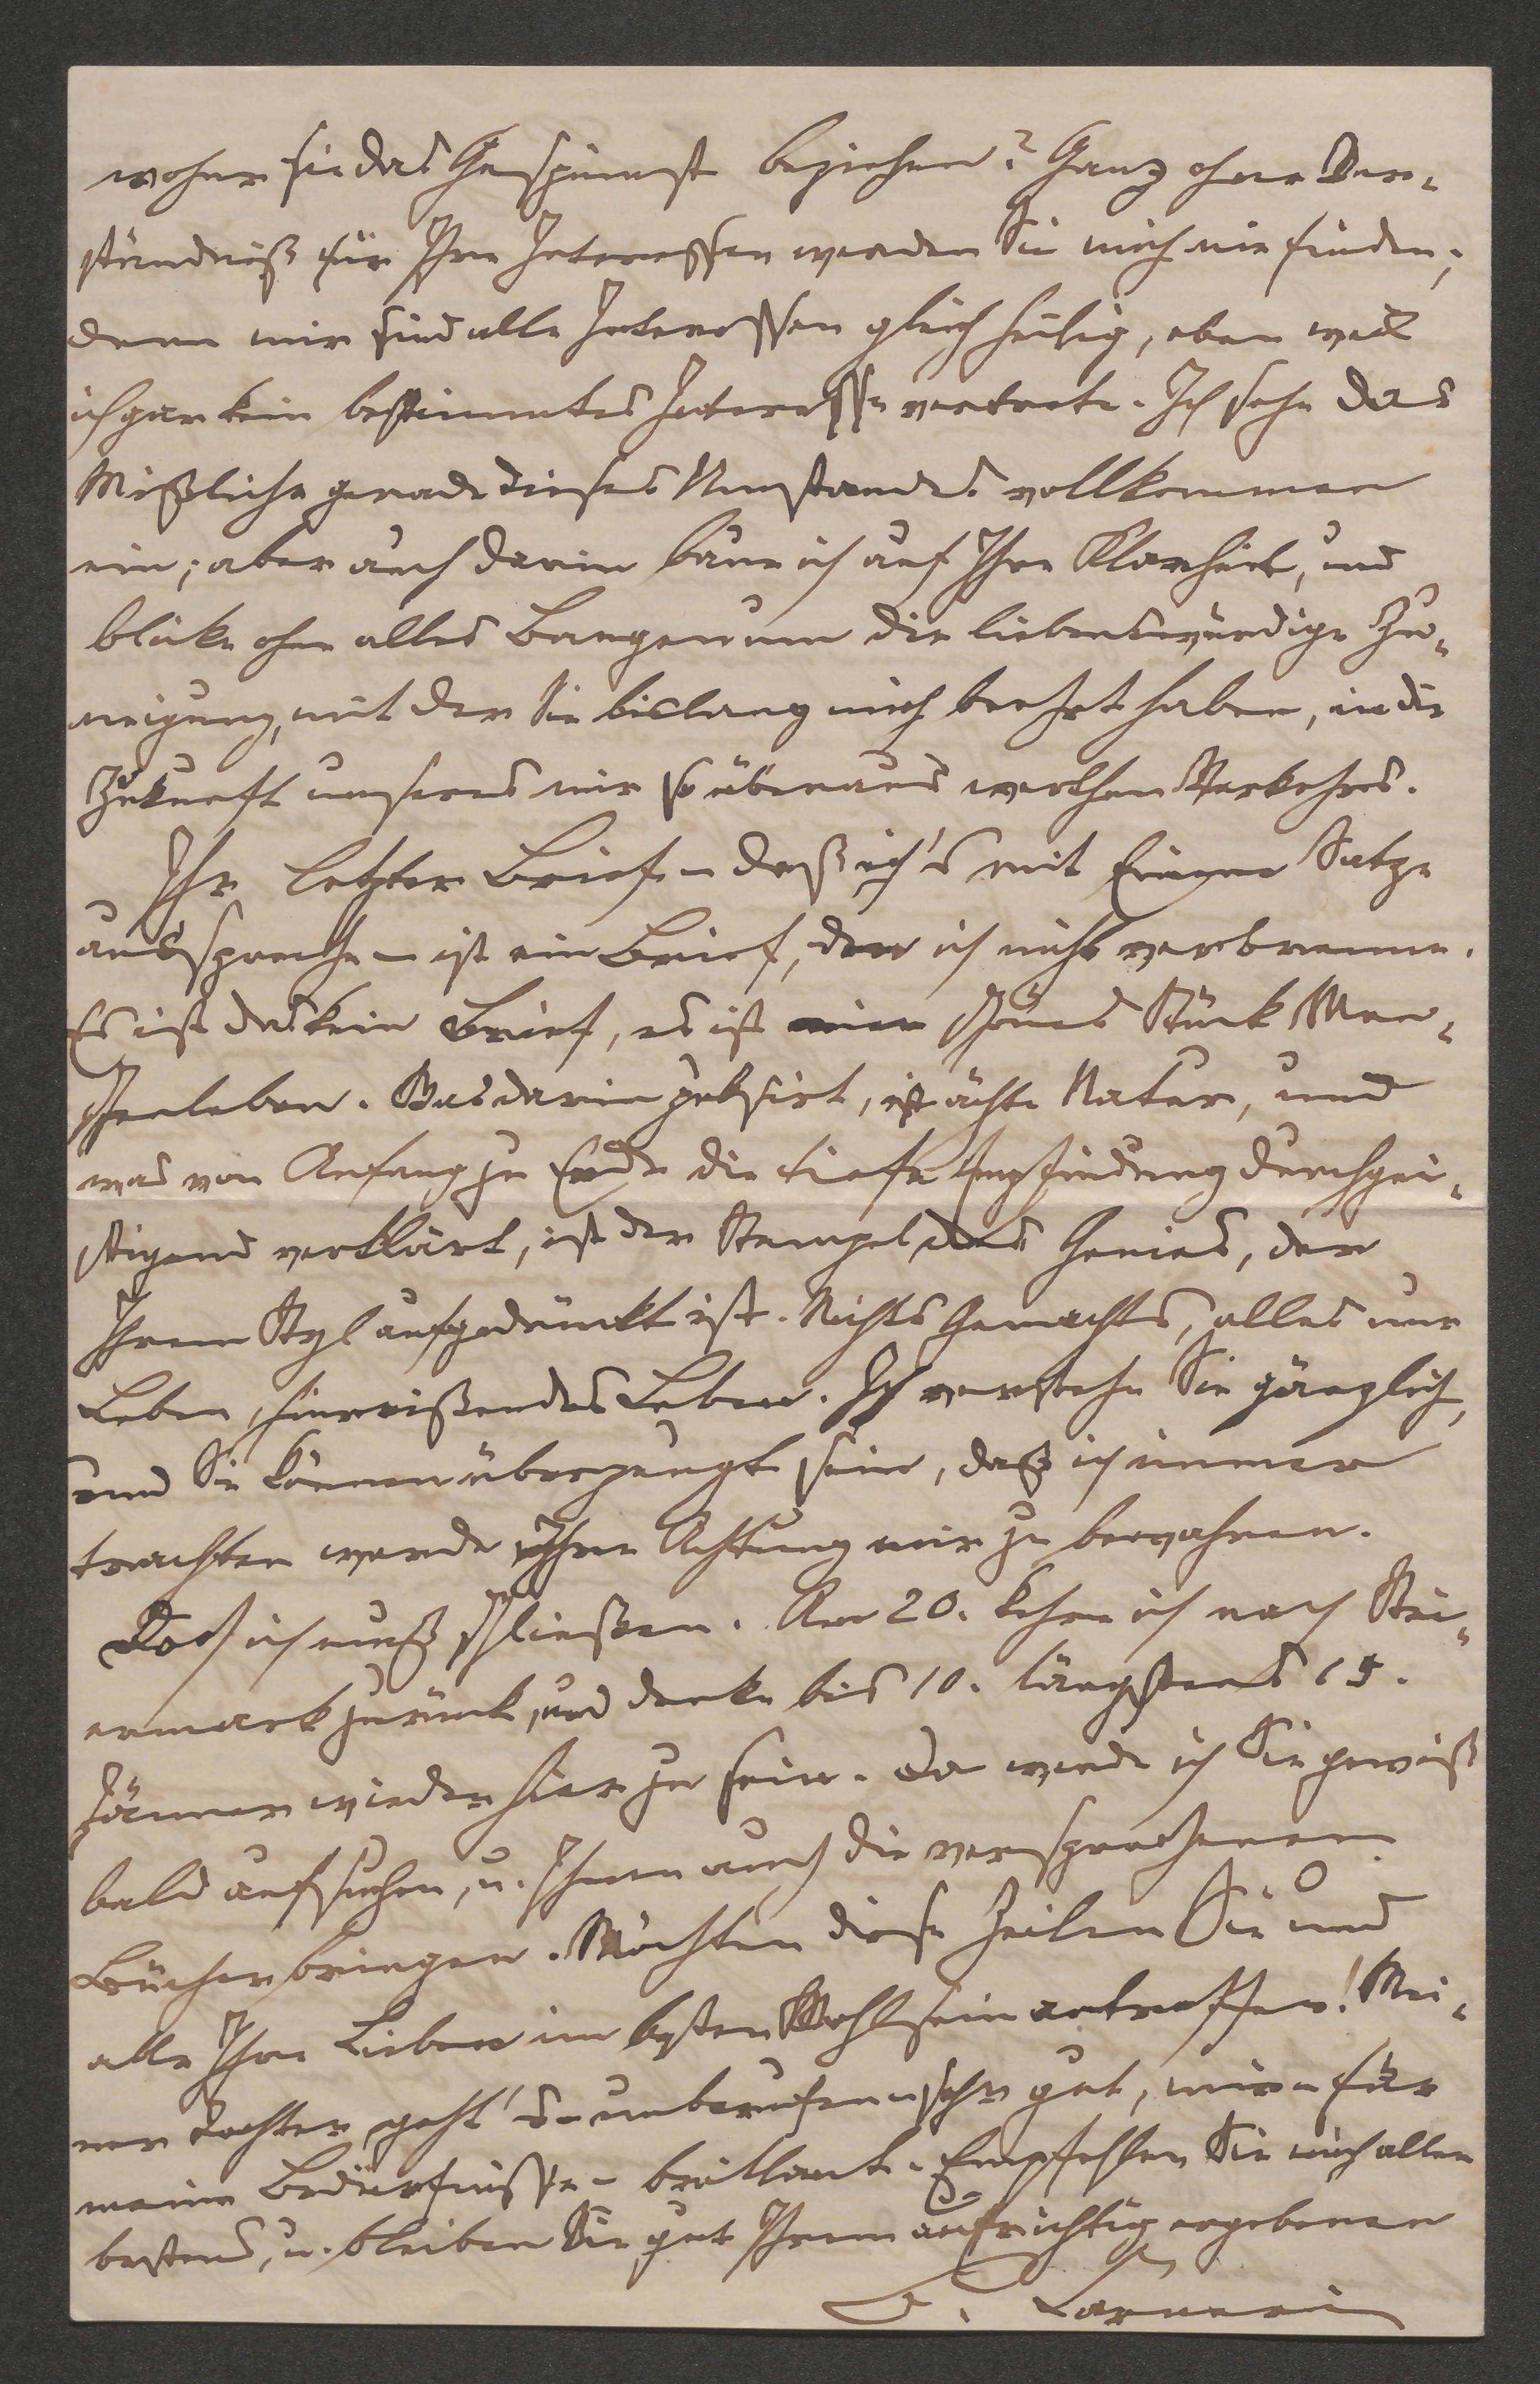 woher sie das Gespinnst beziehen? Ganz ohne Ver-
ständniß für Ihre Interessen werden Sie mich nie finden;
denn mir sind alle Interessen gleich heilig, eben weil
ich gar kein bestimmtes Interesse vertrete. Ich sehe das
Mißliche gerade dieses Umstandes vollkommen
ein; aber auch darin baue ich auf Ihre Klarheit, und
blicke ohne alles Bangen um die liebenswürdige Zu-
neigung, mit der Sie bislang mich beehrt haben, in die
Zukunft unseres mir so überaus werthen Verkehres.
Ihr letzter Brief – daß ich's mit Einem Satze
ausspreche – ist ein Brief, den ich nicht verbrenne.
Es ist das kein Brief, es ist ein schönes Stück Men-
schenleben. Was darin pulsirt, ist ächte Natur, und
was von Anfang zu Ende die tiefe Empfindung durchgei-
stigend verklärt, ist der Stempel des Genies, der
Ihrem Styl aufgedrückt ist. Nichts Gemachtes, alles nur
Leben, hinreißendes Leben. Ich verstehe Sie gänzlich,
und Sie können überzeugt sein, daß ich immer
trachten werde, Ihre Achtung mir zu bewahren.
Doch ich muß schließen. Am 20. kehre ich nach Stei-
ermark zurück, und denke bis 10. längstens 15.
Jänner wieder hier zu sein. Da werde ich Sie gewiß
bald aufsuchen, u. Ihnen auch die versprochenen
Bücher bringen. Möchten diese Zeilen Sie und
alle Ihre Lieben im besten Wohlsein antreffen! Mei-
ner Tochter geht's – unberufen – sehr gut, mir – für
meine Bedürfnisse – brillant. Empfehlen Sie mich allen
bestens, u. bleiben Sie gut Ihrem aufrichtig ergebenen
B. Carneri